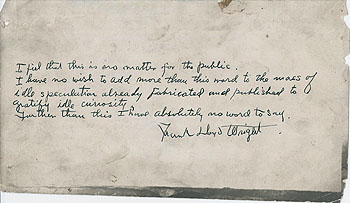 I feel that this is no matter for the public.
I have no wish to add more than this word to the mass of
idle speculation already fabricated and published to
gratify idle curiosity.
Further than this I have absolutely no word to say.
Frank Lloyd Wright.